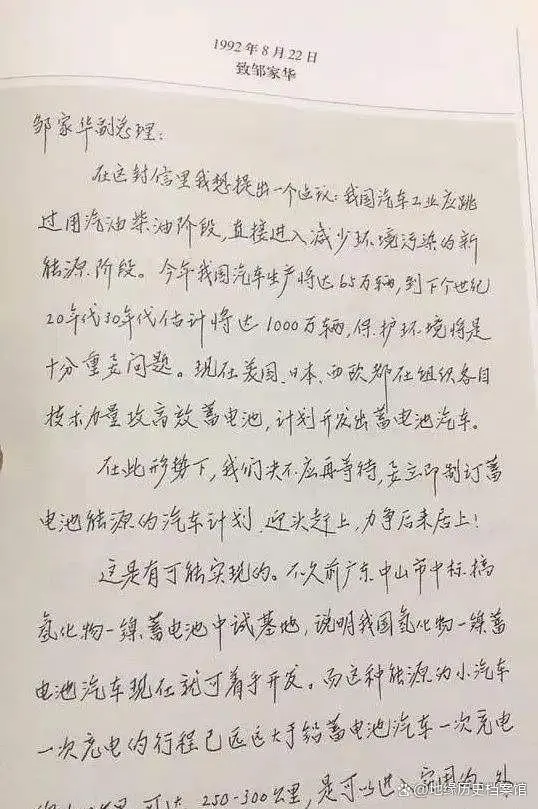 1992年8月22日
致邹家华
邹家华副总理:
在这封信里我想提出一个建议:我国汽车工业应跳
过用汽油柴油阶段,直接进入减少环境污染的新
能源阶段。今年我国汽车生产将达65万辆,到下个世纪
20年代30年代估计将达1000万辆,保护环境将是
十分重要问题。现在美国、日本、西欧都在组织各自
技术力量攻高效蓄电池,计划开发出蓄电池汽车。
在此形势下,我们决不应再等待,要立即制订蓄
电池能源的汽车计划,迎头赶上,力争后来居上!
这是有可能实现的。不久前广东中山市中标搞
氢化物—镍蓄电池中试基地,说明我国氢化物—镍蓄
电池汽车现在就可着手开发。而这种能源为小汽车
一次充电的行程已远远大于铅蓄电池汽车一次充电
可达250-300公里,是可以进入实用的。
@地缘历史档案馆